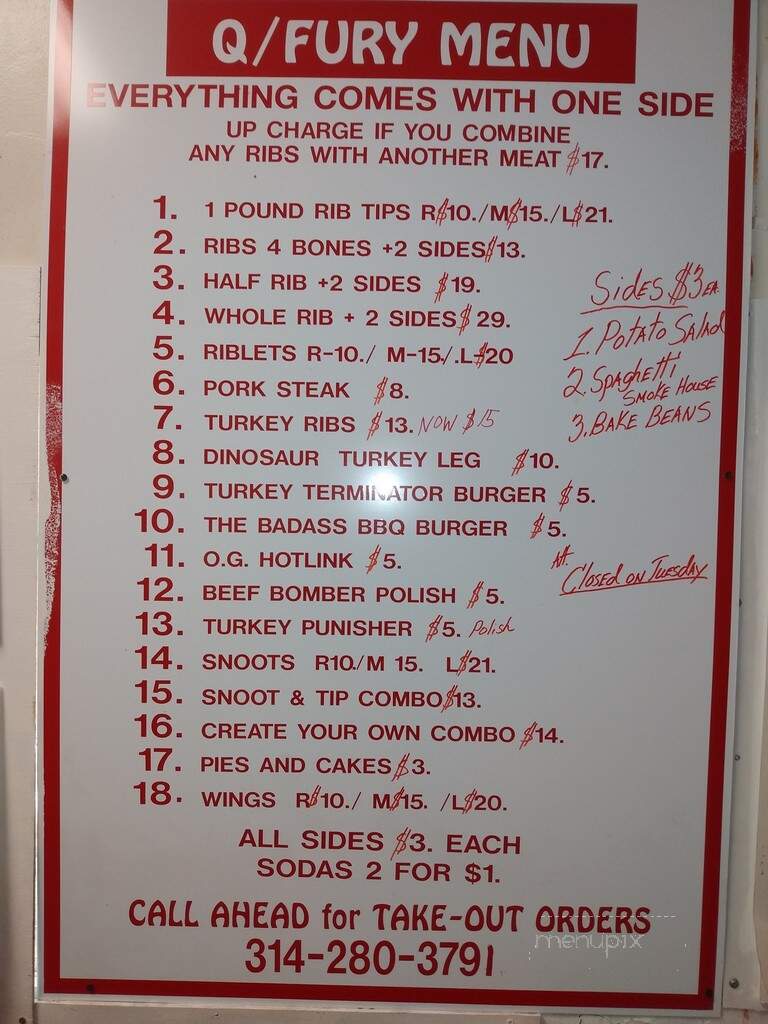 Q/FURY MENU
EVERYTHING COMES WITH ONE SIDE
UP CHARGE IF YOU COMBINE
ANY RIBS WITH ANOTHER MEAT $17.
1. 1 POUND RIB TIPS R$10./M$15./L$21.
2. RIBS 4 BONES +2 SIDES $13.
3. HALF RIB +2 SIDES $19.
4. WHOLE RIB + 2 SIDES $29.
5. RIBLETS R-10./ M-15./.L-$20
6. PORK STEAK $8.
7. TURKEY RIBS $13. NOW $15
8. DINOSAUR TURKEY LEG $10.
9. TURKEY TERMINATOR BURGER $5.
10. THE BADASS BBQ BURGER $5.
11. O.G. HOTLINK $5.
12. BEEF BOMBER POLISH $5.
13. TURKEY PUNISHER $5. Polish
14. SNOOTS R10./M 15. L$21.
15. SNOOT & TIP COMBO $13.
16. CREATE YOUR OWN COMBO $14.
17. PIES AND CAKES $3.
18. WINGS R$10./ M$15. /L$20.
Sides $3 EA.
1. Potato Salad
2. Spaghetti
SMOKE HOUSE
3. BAKE BEANS
Att.
Closed on Tuesday
ALL SIDES $3. EACH
SODAS 2 FOR $1.
CALL AHEAD for TAKE-OUT ORDERS
314-280-3791
menupix